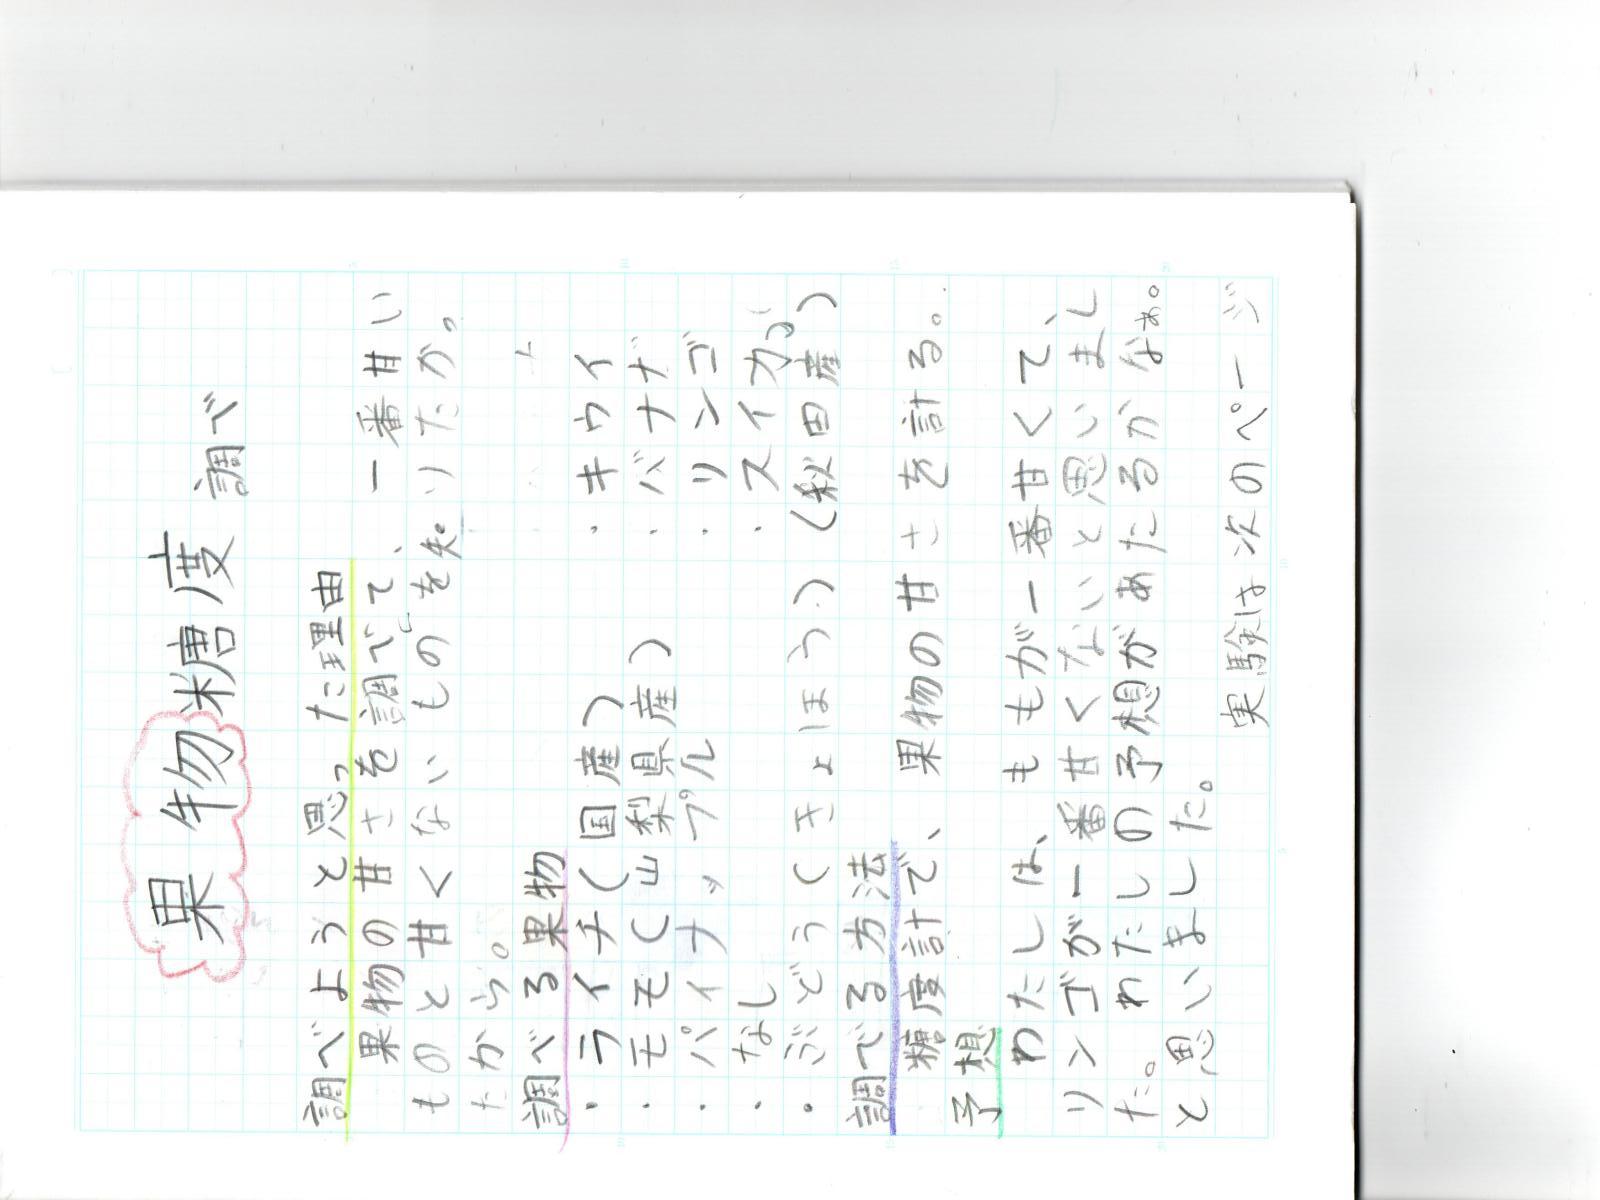 果物糖度 調べ
調べようと思った理由
果物の甘さを調べて、一番甘い
ものと甘くないものを知りたか。
たから。
調べる果物
・ライチ(国産) ・キウイ
・モモ(山梨県産) ・バナナ
・パイナップル ・リンゴ
・なし ・スイカ
・ぶどう(きょほう)(秋田産)
調べる方法
糖度計で、果物の甘さを計る。
予想
わたしは、ももが一番甘くて、
リンゴが一番甘くないと思いまし
た。わたしの予想があたるかなぁ。
と思いました。
実験は次のページ